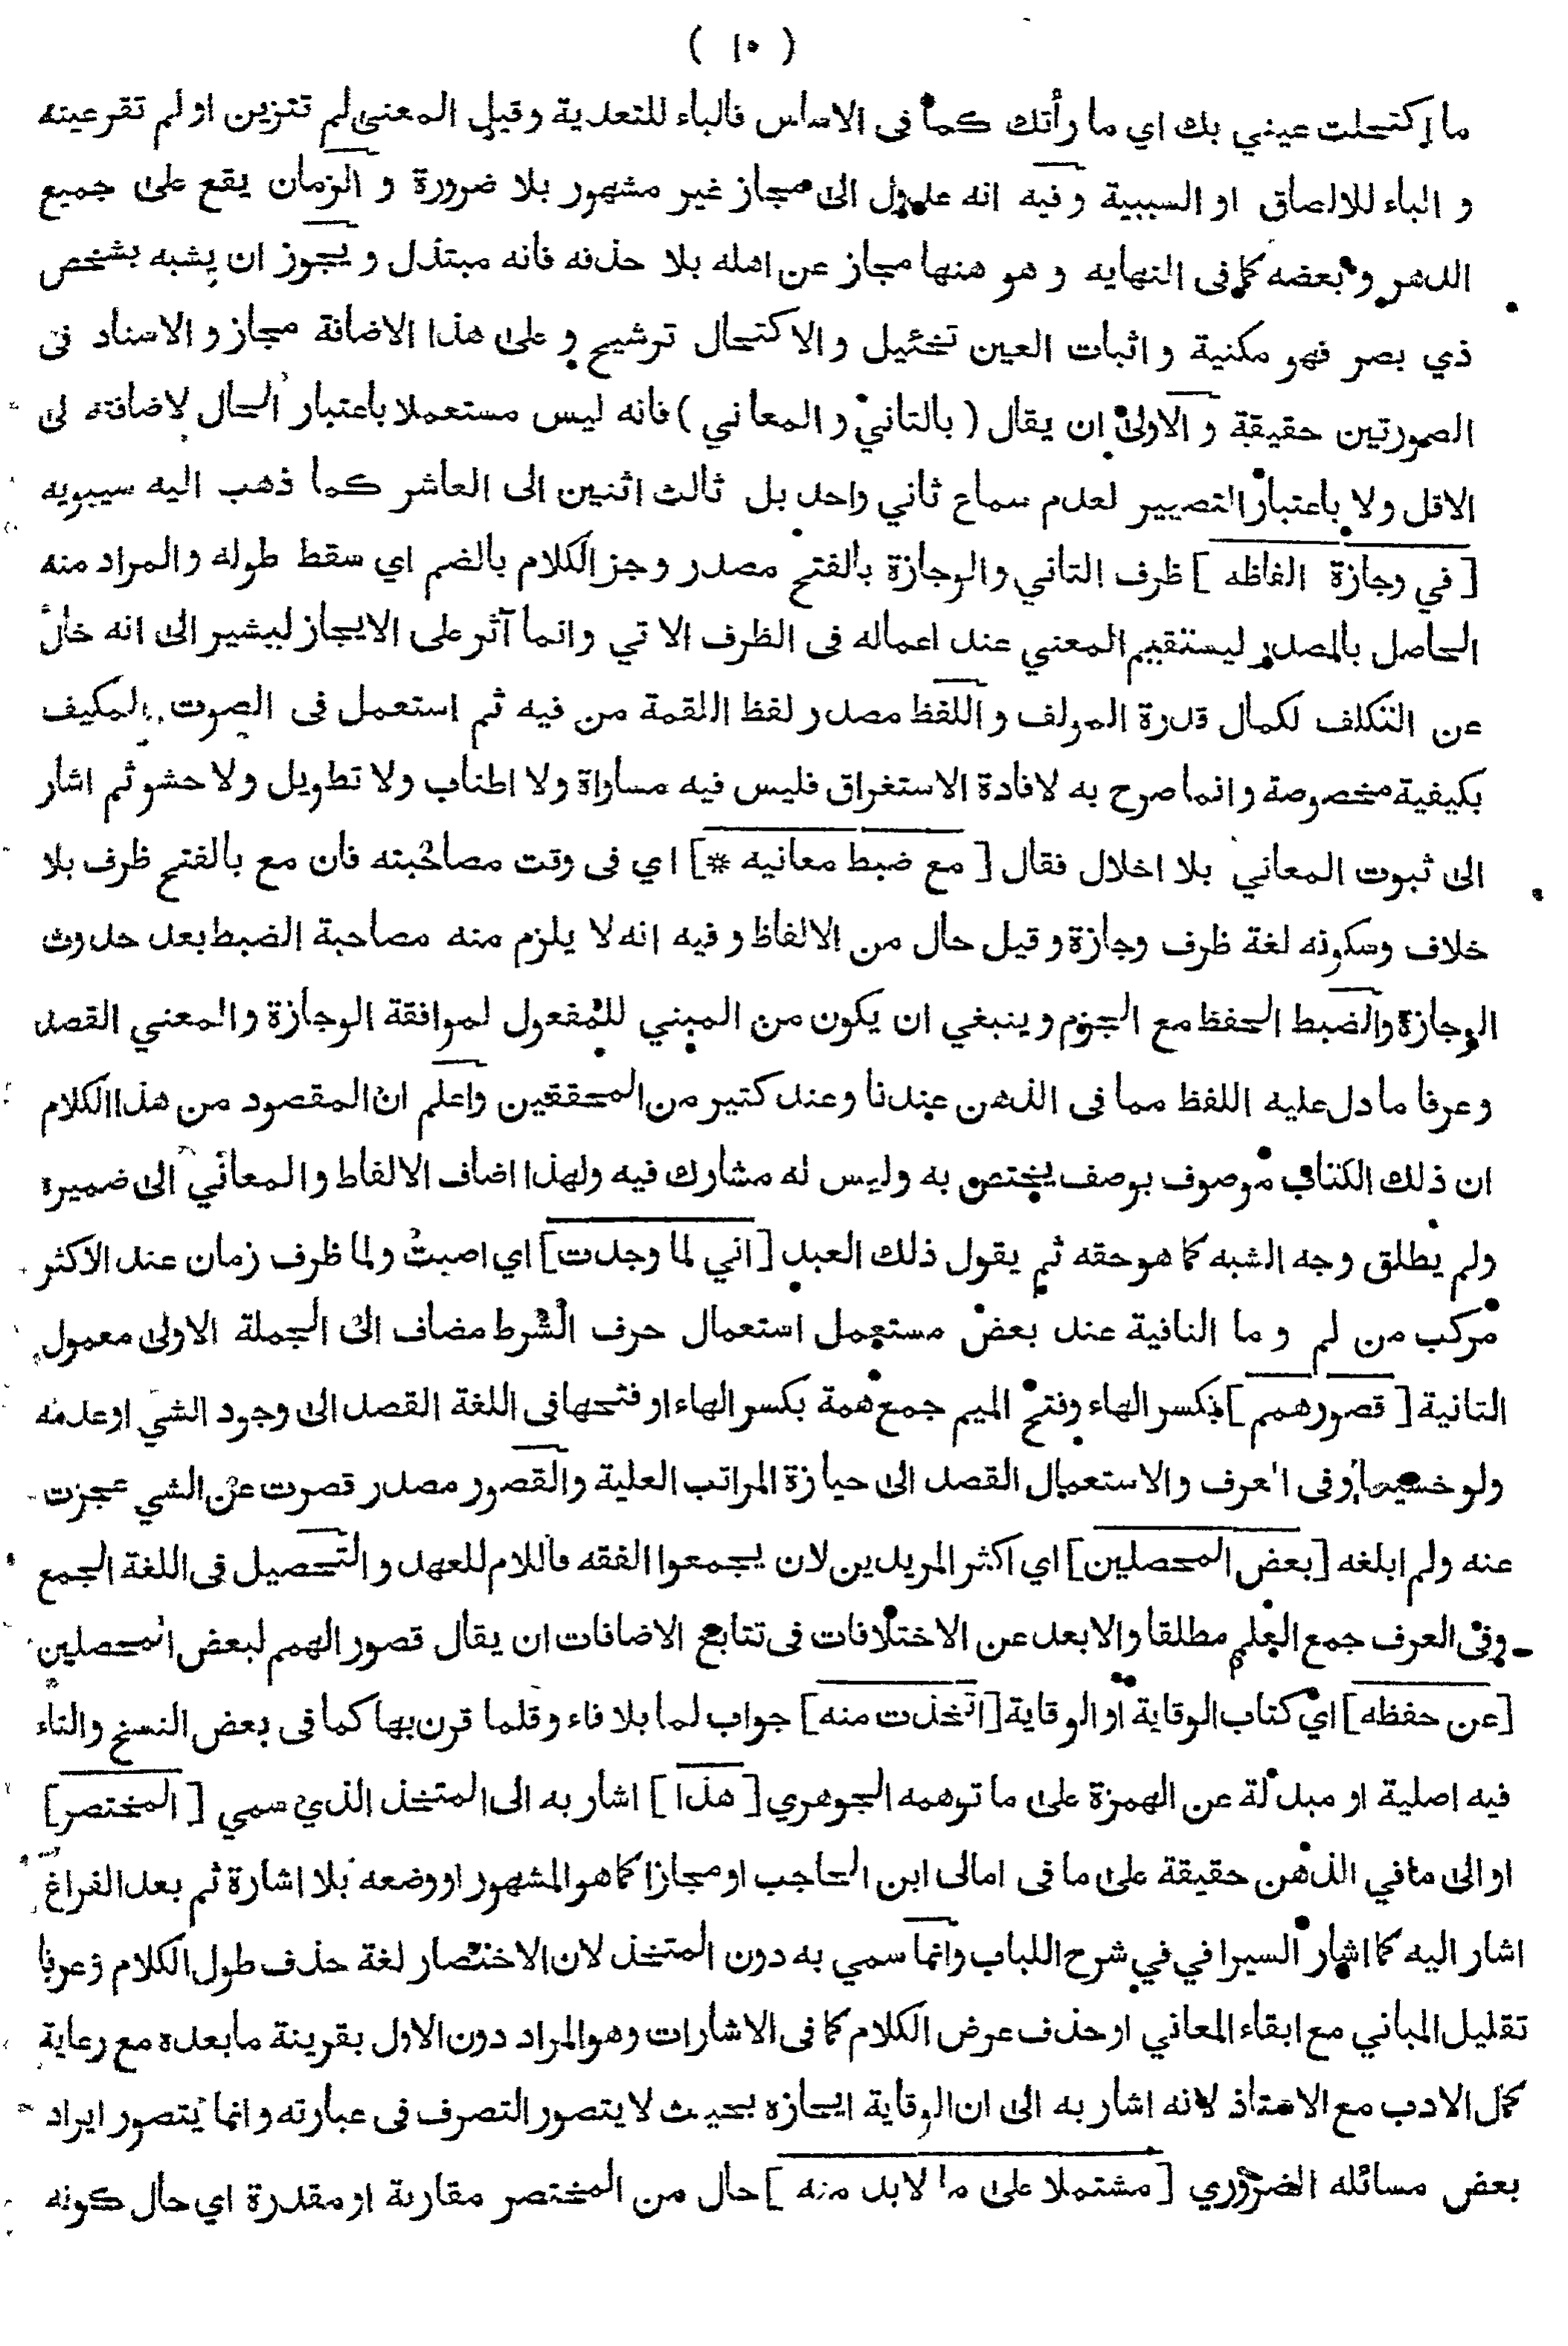 ( ١٠ )
ما اكتحلت عيني بك اي ما رأتك كما فى الاساس فالباء للتعدية وقيل المعنى لم تتزين او لم تقر عينه
و الباء للالصاق او السببية وفيه انه عدول الى مجاز غير مشهور بلا ضرورة و الزمان يقع على جميع
الدهر و بعضه كما فى النهايه و هو ههنا مجاز عن اهله بلا حذفه فانه مبتذل و يجوز ان يشبه بشخص
ذي بصر فهو مكنية و اثبات العين تخئيل و الاكتحال ترشيح و على هذا الاضافة مجاز و الاسناد فى
الصورتين حقيقة و الاولى ان يقال ( بالثاني و المعاني ) فانه ليس مستعملا باعتبار الحال لاضافته لى
الاقل ولا باعتبار التصيير لعدم سماع ثاني واحد بل ثالث اثنين الى العاشر كما ذهب اليه سيبويه
[ في وجازة الفاظه ] ظرف الثاني والوجازة بالفتح مصدر وجز الكلام بالضم اي سقط طوله والمراد منه
الحاصل بالمصدر ليستقيم المعني عند اعماله فى الظرف الاتي وانما آثر على الايجاز ليشير الى انه خال
عن التكلف لكمال قدرة المولف و اللفظ مصدر لفظ اللقمة من فيه ثم استعمل فى الصوت المكيف
بكيفية مخصوصة وانما صرح به لافادة الاستغراق فليس فيه مساواة ولا اطناب ولا تطويل ولا حشو ثم اشار
الى ثبوت المعاني بلا اخلال فقال [ مع ضبط معانيه * ] اي فى وقت مصاحبته فان مع بالفتح ظرف بلا
خلاف وسكونه لغة ظرف وجازة وقيل حال من الالفاظ وفيه انه لا يلزم منه مصاحبة الضبط بعد حدوث
الوجازة والضبط الحفظ مع الجزم وينبغي ان يكون من المبني للمفعول لموافقة الوجازة والمعني القصد
وعرفا ما دل عليه اللفظ مما فى الذهن عندنا وعند كثير من المحققين واعلم ان المقصود من هذا الكلام
ان ذلك الكتاب موصوف بوصف يختص به وليس له مشارك فيه ولهذا اضاف الالفاظ والمعاني الى ضميره
ولم يطلق وجه الشبه كما هو حقه ثم يقول ذلك العبد [ اني لما وجدت ] اي اصبت ولما ظرف زمان عند الاكثر
مركب من لم و ما النافية عند بعض مستعمل استعمال حرف الشرط مضاف الى الجملة الاولى معمول
الثانية [ قصور همم ] بكسر الهاء وفتح الميم جمع همة بكسر الهاء او فتحها فى اللغة القصد الى وجود الشي او عدمه
ولو خسيسا وفى العرف والاستعمال القصد الى حيازة المراتب العلية والقصور مصدر قصرت عن الشي عجزت
عنه ولم ابلغه [ بعض المحصلين ] اي اكثر المريدين لان يجمعوا الفقه فاللام للعهد و التحصيل فى اللغة الجمع
وفى العرف جمع العلم مطلقا والابعد عن الاختلافات فى تتابع الاضافات ان يقال قصور الهمم لبعض المحصلين
[ عن حفظه ] اي كتاب الوقاية او الوقاية [ اتخذت منه ] جواب لما بلا فاء وقلما قرن بها كما فى بعض النسخ والتاء
فيه اصلية او مبدلة عن الهمزة على ما توهمه الجوهري [ هذا ] اشار به الى المتخذ الذي سمي [ المختصر ]
او الى ما في الذهن حقيقة على ما فى امالى ابن الحاجب او مجازا كما هو المشهور او وضعه بلا اشارة ثم بعد الفراغ
اشار اليه كما اشار السيرافي في شرح اللباب وانما سمي به دون المتخذ لان الاختصار لغة حذف طول الكلام وعرفا
تقليل المباني مع ابقاء المعاني او حذف عرض الكلام كما فى الاشارات وهو المراد دون الاول بقرينة ما بعده مع رعاية
كمال الادب مع الاستاذ لانه اشار به الى ان الوقاية ايجازه بحيث لا يتصور التصرف فى عبارته وانما يتصور ايراد
بعض مسائله الضروري [ مشتملا على ما لابد منه ] حال من المختصر مقارنة او مقدرة اي حال كونه